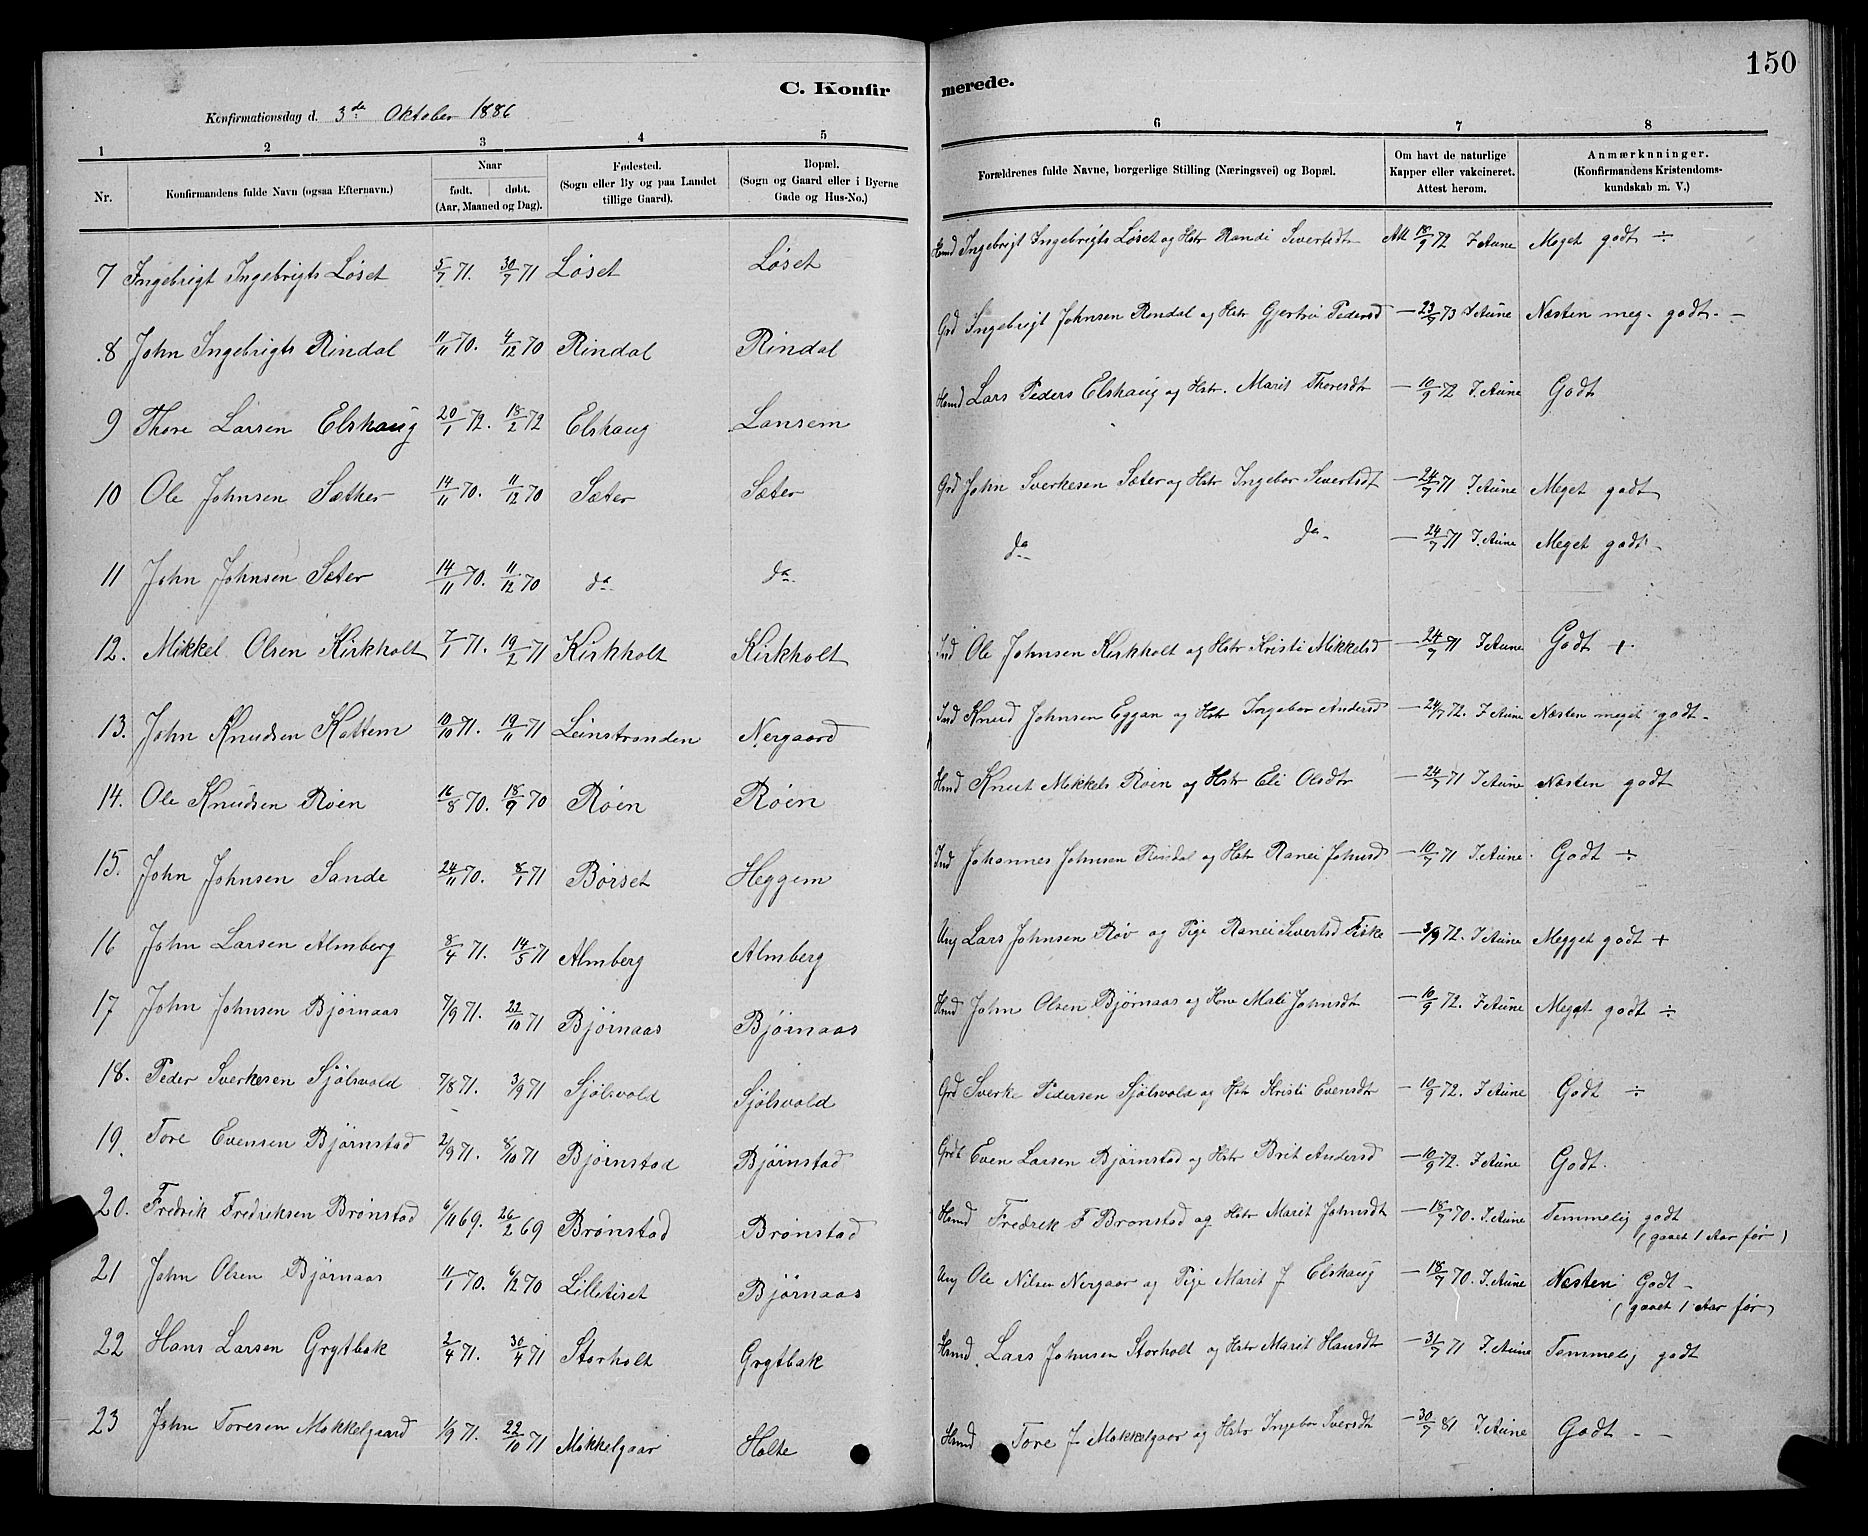 150
C. Konfirmerede.
Konfirmationsdag d. 3de Oktober 1886
1 2 3 4 5 6 7 8
Nr. Konfirmandens fulde Navn (ogsaa Efternavn.) Naar født. døbt. (Aar, Maaned og Dag). Fødested. (Sogn eller By og paa Landet tillige Gaard). Bopæl. (Sogn og Gaard eller i Byerne Gade og Hus-No.) Forældrenes fulde Navne, borgerlige Stilling (Næringsvei) og Bopæl. Om havt de naturlige Kapper eller vakcineret. Attest herom. Anmærknninger. (Konfirmandens Kristendomskundskab m. V.)
7 Ingebrigt Ingebrigts Løset 5/7 71. 30/7 71 Løset Løset Hmd Ingebrigt Ingebrigts Løset og Hstr Randi Sivertsdt Att 18/9 72 I Aune Meget godt ÷
8 John Ingebrigts Rindal 11/11 70. 4/12 70 Rindal Rindal Grd Ingebrigt Johnsen Rindal og Hstr Gjertru Pedersd — 23/9 73 I Aune Næsten meg. godt. —
9 Thore Larsen Elshaug 20/1 72. 18/2 72 Elshaug Lansem Hsmd Lars Peders Elshaug og Hstr. Marit Thoresdt — 10/9 72 I. Aune Godt
10 Ole Johnsen Sæther 14/11 70. 11/12 70 Sæter Sæter Grd John Sverkesen Sæter og Hstr Ingebor Sivertsdt — 24/7 71 I Aune Meget godt
11 John Johnsen Sæter 14/11 70. 11/12 70 do do. do do — 24/7 71 I. Aune Meget godt
12. Mikkel Olsen Kirkholt 7/1 71. 19/2 71 Kirkholt Kirkholt Ind Ole Johnsen Kirkholt og Hstr Kristi Mikkelsd — 24/7 71 I Aune Godt +
13. John Knudsen Kattem 10/10 71. 19/11 71 Leinstranden Nergaard Ind Knud Johnsen Eggan og Hstr Ingebor Andersd — 24/7 72. I Aune Næsten meget godt —
14. Ole Knudsen Røen 16/8 70. 18/9 70 Røen Røen Hmd Knut Mikkels Røen og Hstr Eli Olsdtr — 24/7 71 I Aune Næsten godt
15. John Johnsen Sande 24/11 70. 8/1 71 Børset Heggem Ind Johannes Johnsen Rindal og Hstr Ranei Johnsd — 10/7 71 I. Aune. Godt ÷
16 John Larsen Almberg 8/4 71. 14/5 71 Almberg Almberg Ung Lars Johnsen Røv og Pige Ranei Sivertsd Fiske — 3/9 72. I Aune Megget godt +
17 John Johnsen Bjørnaas 7/9 71. 22/10 71 Bjørnaas Bjørnaas Hmd John Olsen Bjørnaas og Hone Mali Johnsdt — 10/9 72. I Aune Meget godt ÷
18. Peder Sverkesen Sjølsvold 7/8 71. 3/9 71 Sjølsvold Sjølsvold Grd Sverke Pedersen Sjølsvold og Hstr Kristi Evensdtr — 10/9 72. I Aune Godt ÷
19. Tore Evensen Bjørnstad 2/9 71. 8/10 71 Bjørnstad Bjørnstad Grdt Even Larsen Bjørnstad og Hstr Brit Andersd — 10/9 72. I Aune Godt.
20. Fredrik Fredriksen Brønstad 6/1 69. 26/2 69 Brønstad Brønstad Hsmd Fredrek F Brønstad og Hstr Marit Johnsdt — 18/7 70. I. Aune Temmelig godt
(gaaet 1 Aar før)
21 John Olsen Bjørnaas 11/1 70. 6/2 70 Lilletiset Bjørnaas Ung Ole Nilsen Nergaar og Pige Marit J Elshaug — 18/7 70. I. Aune Næsten Godt —
(gaaet 1 Aar før)
22 Hans Larsen Grytbak 2/4 71. 30/4 71 Storholt Grytbak Hsmd Lars Johnsen Storholt og Hstr Marit Hansdtr — 31/7 71 I. Aune Temmelig godt
23 John Toresen Mokkelgaard 1/9 71. 22/10 71 Mokkelgaar Holte Hsmd Tore J Mokkelgaar og Hstr Ingebor Iversdt — 30/7 81 I. Aune Godt — —